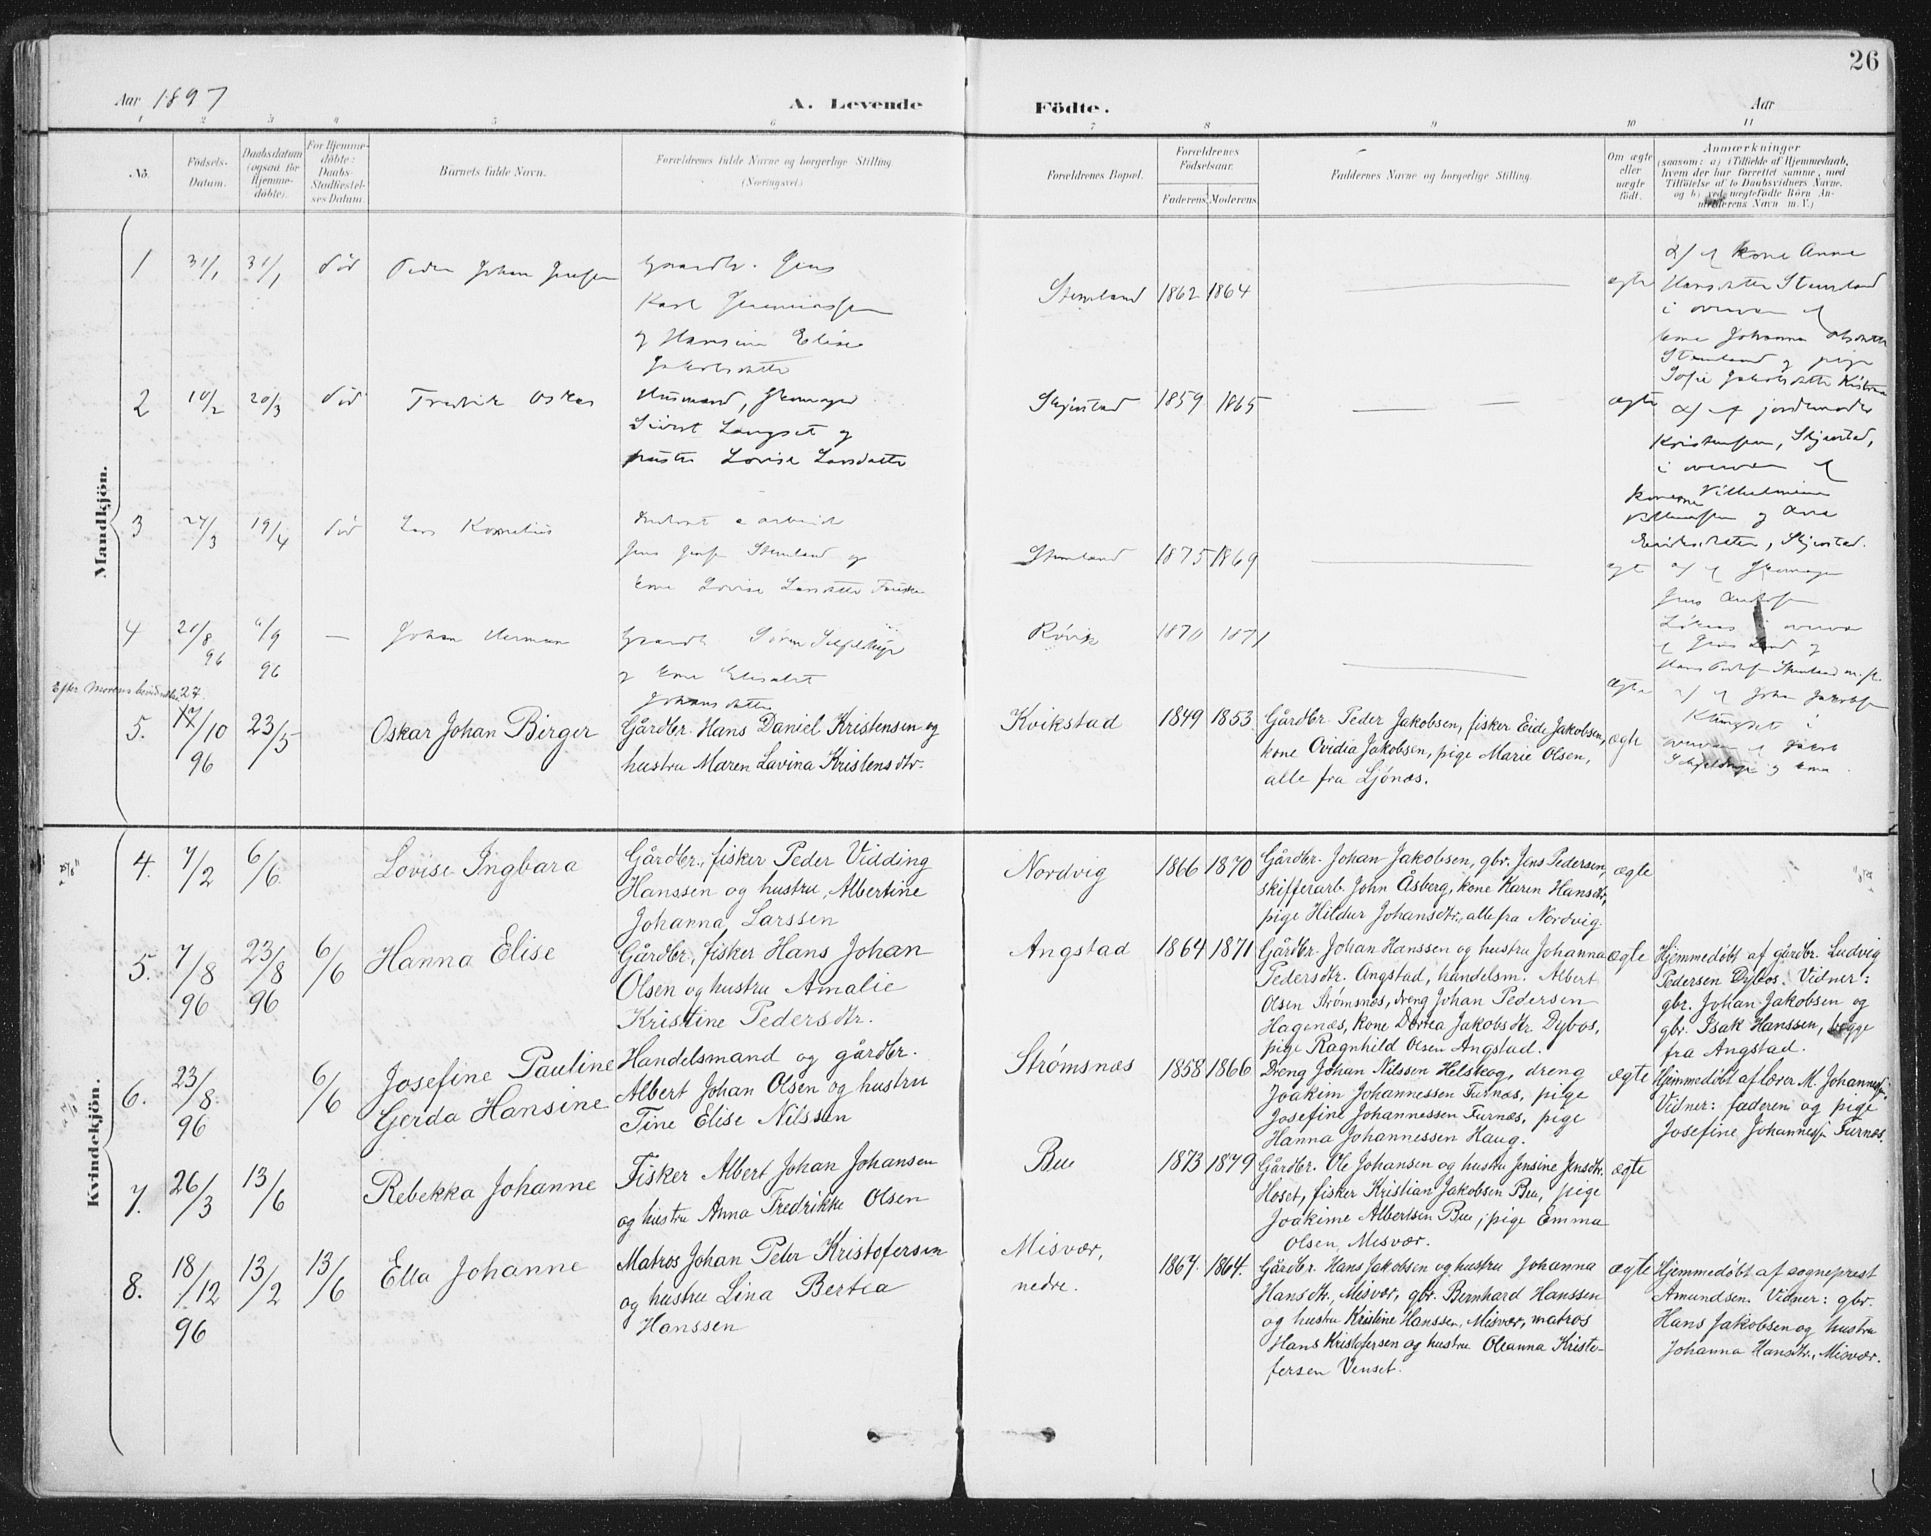 26
Aar 1897
A. Levende
Födte.
Aar
1 2 3 4 5 6 7 8 9 10 11
No.
Födsels-
Datum.
Daabsdatum
(ogsaa for
Hjemme-
döbte).
For Hjemme-
döbte:
Daabs-
Stadfæstel-
ses Datum.
Barnets fulde Navn.
Forældrenes fulde Navne og borgerlige Stilling.
(Næringsvei.)
Forældrenes Bopæl.
Forældrenes
Födselsaar.
Faderens. Moderens.
Faddernes Navne og borgerlige Stilling.
Om ægte
eller
uægte
födt.
Anmærkninger
(saasom: a) i Tilfælde af Hjemmedaab,
hvem der har forrettet samme, med
Tilföielse af to Daabsvidners Navne,
og b) ved uægtefödte Börn An-
melderens Navn m. V.)
Mandkjön.
1
31/1
31/1
död
Peder Johan Jensen
Gaardbr. Jens
Karl
og Hansine Elise
Jakobsdatter
Stemland
1862 1864
ægte
kone Anne
Hansdatter Stemland
i overvær af
Johanna Olsdatter
Stemland og pige
Sofie Jakobsdatter
2
10/2
20/3
död
Fredrik Oskar
Husmand, skomager
Sivert Langset og
hustru Lovise Larsdatter
Skjerstad
1859 1865
ægte
af jordemoder
Kristensen, Skjerstad,
i overvær af
konerne Vilhelmine
og
Eriksdatter, Skjerstad.
3
27/3
19/4
död
Lars Kornelius
arbeid
Jens Stemland og
Lovise Larsdatter
Stemland
1875 1869
ægt
af skomager
Jens
i overvær
af
Hans
4
20/8
96
6/9
96
—
Johan Herman
Gaardb. Søren
og Elisabet
Johansdatter
Røvik
1870 1871
ægte
af Johan Jakobsen
Klungset i
overvær af
og
Efter Morens
27
17/10
96
5.
23/5
Oskar Johan Birger
Gårdbr. Hans Daniel Kristensen og
hustru Maren Lavina Kristensdtr.
Kvikstad
1849 1853.
Gårdbr. Peder Jakobsen, fisker Eide Jakobsen,
kone Ovidia Jakobsen, pige Marie Olsen,
alle fra Ljönæs.
ægte
Kvindekjön.
4.
7/2
6/6
Lovise Ingbara
Gårdbr., fisker Peder Vidding
Hanssen og hustru, Albertine
Johanna Larssen
Nordvig
1866 1870
Gårdbr. Johan Jakobsen, gbr. Jens Pedersen,
skifferarb. John Åsberg, kone Karen Hansdtr,
pige Hildur Johansdtr., alle fra Nordvig
ægte
5.
7/8
96
23/8
96
6/6
Hanna Elise
Gårdbr., fisker Hans Johan
Olsen og hustru Amalie
Kristine Pedersdtr.
Angstad
1864 1871
Gårdbr. Johan Hanssen og hustru Johanna
Pedersdtr. Angstad, handelsm. Albert
Olsen Strømsnæs, dreng Johan Pedersen
Hagenæs, kone Dortea Jakobsdtr. Dybos,
pige Ragnhild Olsen Angstad.
ægte
Hjemmedøbt af gårdbr. Ludvig
Pedersen Dybos. Vidner:
gbr. Johan Jakobsen og
gbr. Isak Hanssen, begge
fra Angstad.
6.
23/8
96
6/6
Josefine Pauline
Gerda Hansine
Handelsmand og gårdbr.
Albert Johan Olsen og hustru
Tine Elise Nilssen
Strømsnæs
1858 1866
Dreng Johan Nilssen Helskog, dreng
Joakim Johannessen Furnæs, pige
Josefine Johannessen Furnæs, pige
Hanna Johannessen Haug.
ægte
Hjemmedøbt af lærer M. Johannessen.
Vidner: faderen og pige
Josefine Johannessen Furnæs.
7.
26/3
13/6
Rebekka Johanne
Fisker Albert Johan Johansen
og hustru Anna Fredrikke Olsen
Bue
1873 1879
Gårdbr. Ole Johansen og hustru Jensine Jensdtr.
Hoset, fisker Kristian Jakobsen Bue, pige
Joakime Albertsen Bue, pige Emma
Olsen, Misvær.
ægte
8.
18/12
96
13/2
13/6
Ella Johanne
Matros Johan Peter Kristofersen
og hustru Lina Bertea
Hanssen
Misvær,
nedre.
1867. 1864.
Gårdbr. Hans Jakobsen og hustru Johanna
Hansdtr, Misvær, gbr. Bernhard Hanssen
og hustru Kristine Hanssen, Misvær, matros
Hans Kristofersen og hustru Oleanna Kristo-
fersen Venset.
ægte
Hjemmedøbt af sogneprest
Amundsen. Vidner: gbr.
Hans Jakobsen og hustru
Johanna Hansdtr., Misvær.